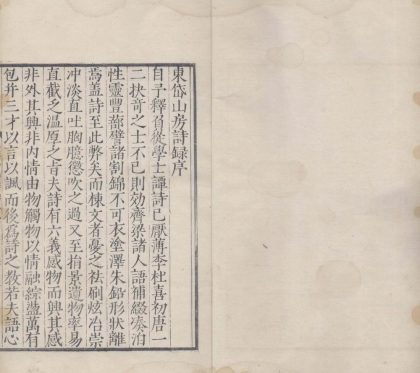 東岱山房詩録序
自予釋負從學士譚詩已厭薄李杜喜初唐一
二抉奇之士不已則効齊梁諸人語補綴湊泊
性靈豐蔀譬諸割錦不可衣塗澤朱鉛形狀離
焉蓋詩至此弊矣而棟文者憂之祛刷炫冶崇
冲淡直吐胸臆懲吹之過又至指景遺物率易
直截乏溫厚之旨夫詩有六義感物而興其感
非外其興非内情由物觸物以情融綜盡萬有
包并三才以言以諷而後爲詩之教若夫語心